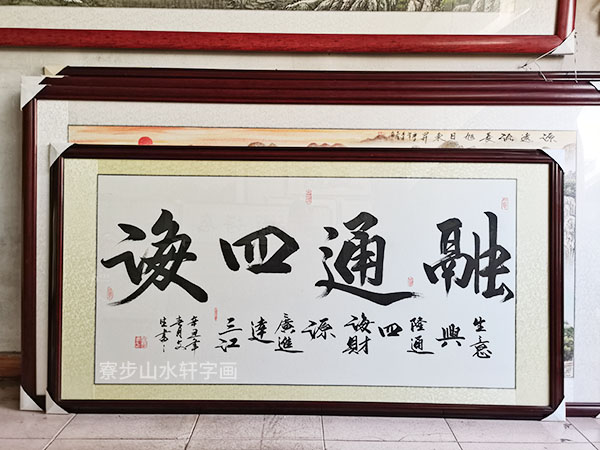 源遠流長旭日東昇
融通四海
生意興隆通四海財源廣進達三江
辛丑年
寮步山水轩字画